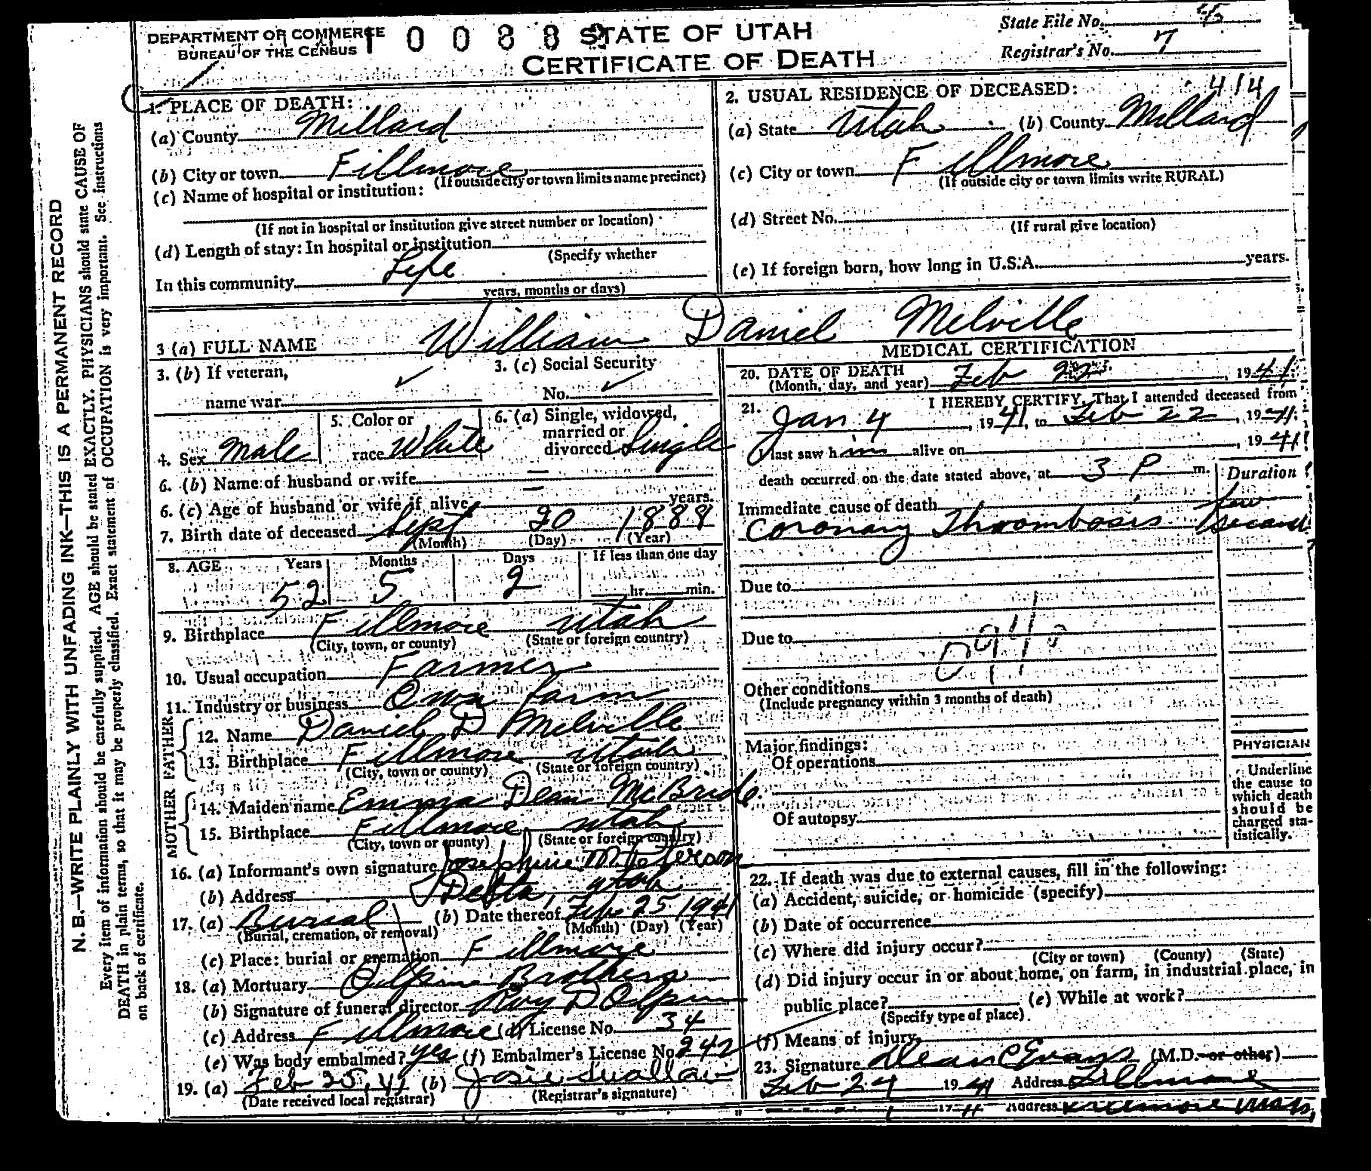 DEPARTMENT OF COMMERCE
BUREAU OF THE CENSUS
STATE OF UTAH
CERTIFICATE OF DEATH
State File No. 45
Registrar's No. 7
N. B.—WRITE PLAINLY WITH UNFADING INK—THIS IS A PERMANENT RECORD
Every item of information should be carefully supplied. AGE should be stated EXACTLY. PHYSICIANS should state CAUSE OF
DEATH in plain terms, so that it may be properly classified. Exact statement of OCCUPATION is very important. See instructions
on back of certificate.
1. PLACE OF DEATH:
(a) County Millard
(b) City or town Fillmore
(If outside city or town limits name precinct)
(c) Name of hospital or institution:
(If not in hospital or institution give street number or location)
(d) Length of stay: In hospital or institution
(Specify whether
In this community Life
years, months or days)
2. USUAL RESIDENCE OF DECEASED: 414
(a) State Utah (b) County Millard
(c) City or town Fillmore
(If outside city or town limits write RURAL)
(d) Street No.
(If rural give location)
(e) If foreign born, how long in U.S.A. years.
3 (a) FULL NAME William Daniel Melville
3. (b) If veteran,
name war
3. (c) Social Security
No.
4. Sex Male
5. Color or
race White
6. (a) Single, widowed,
married or
divorced Single
6. (b) Name of husband or wife
6. (c) Age of husband or wife if alive years.
7. Birth date of deceased Sept 20 1888
(Month) (Day) (Year)
8. AGE Years Months Days If less than one day
52 5 2 hr. min.
9. Birthplace Fillmore Utah
(City, town, or county) (State or foreign country)
10. Usual occupation Farmer
11. Industry or business Own farm
FATHER
12. Name Daniel D Melville
13. Birthplace Fillmore Utah
(City, town or county) (State or foreign country)
MOTHER
14. Maiden name Emma Dean McBride
15. Birthplace Fillmore, Utah
(City, town or county) (State or foreign country)
16. (a) Informant's own signature Josephine M Peterson
(b) Address Delta, Utah
17. (a) Burial (b) Date thereof Feb 25 1941
(Burial, cremation, or removal) (Month) (Day) (Year)
(c) Place: burial or cremation Fillmore
18. (a) Mortuary Olpin Brothers
(b) Signature of funeral director Roy D Olpin
(c) Address Fillmore (d) License No. 34
(e) Was body embalmed? yes (f) Embalmer's License No. 242
19. (a) Feb 25, 41 (b) Josie Swallow
(Date received local registrar) (Registrar's signature)
MEDICAL CERTIFICATION
20. DATE OF DEATH
(Month, day, and year) Feb 22, 1941
21. I HEREBY CERTIFY, That I attended deceased from
Jan 4, 1941, to Feb 22, 1941;
I last saw him alive on , 1941
death occurred on the date stated above, at 3 P m.
Duration
Immediate cause of death few
Coronary Thrombosis seconds
Due to
Due to
Other conditions
(Include pregnancy within 3 months of death)
Major findings:
Of operations
Of autopsy
PHYSICIAN
Underline
the cause to
which death
should be
charged sta-
tistically.
22. If death was due to external causes, fill in the following:
(a) Accident, suicide, or homicide (specify)
(b) Date of occurrence
(c) Where did injury occur?
(City or town) (County) (State)
(d) Did injury occur in or about home, on farm, in industrial place, in
public place? (e) While at work?
(Specify type of place)
(f) Means of injury
23. Signature Dean C Evans (M.D. or other)
Feb 24 1941 Address Fillmore
Address